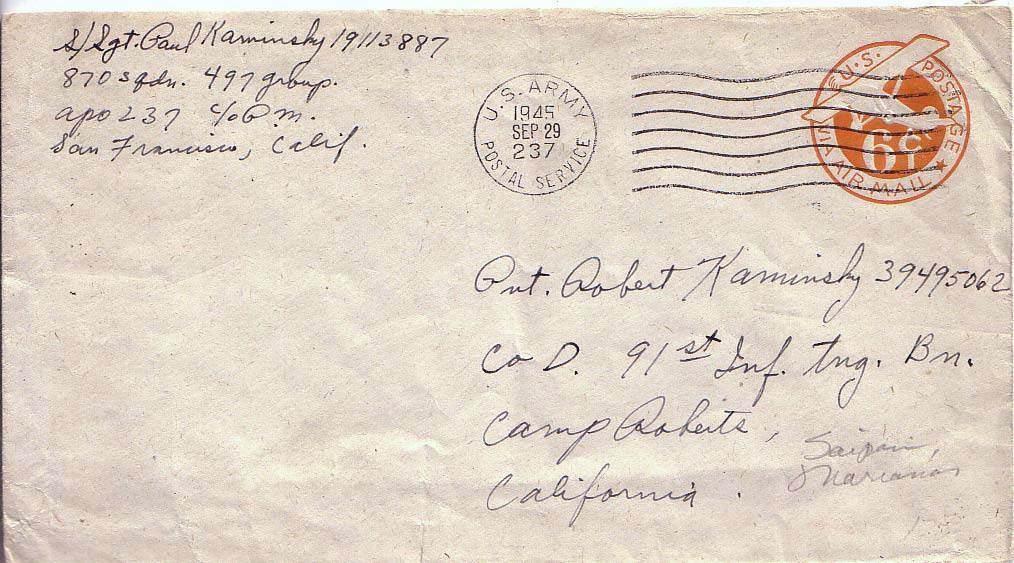 S/Sgt. Paul Kaminsky 19113887
870 sqdn. 497 group.
apo 237 c/o P.m.
San Francisco, Calif.
U.S. ARMY
1945
SEP 29
237
POSTAL SERVICE
U.S. POSTAGE
6¢
VIA AIR MAIL
Pvt. Robert Kaminsky 39495062
Co D. 91st Inf. Tng. Bn.
Camp Roberts,
California.
Saipan,
Marianas